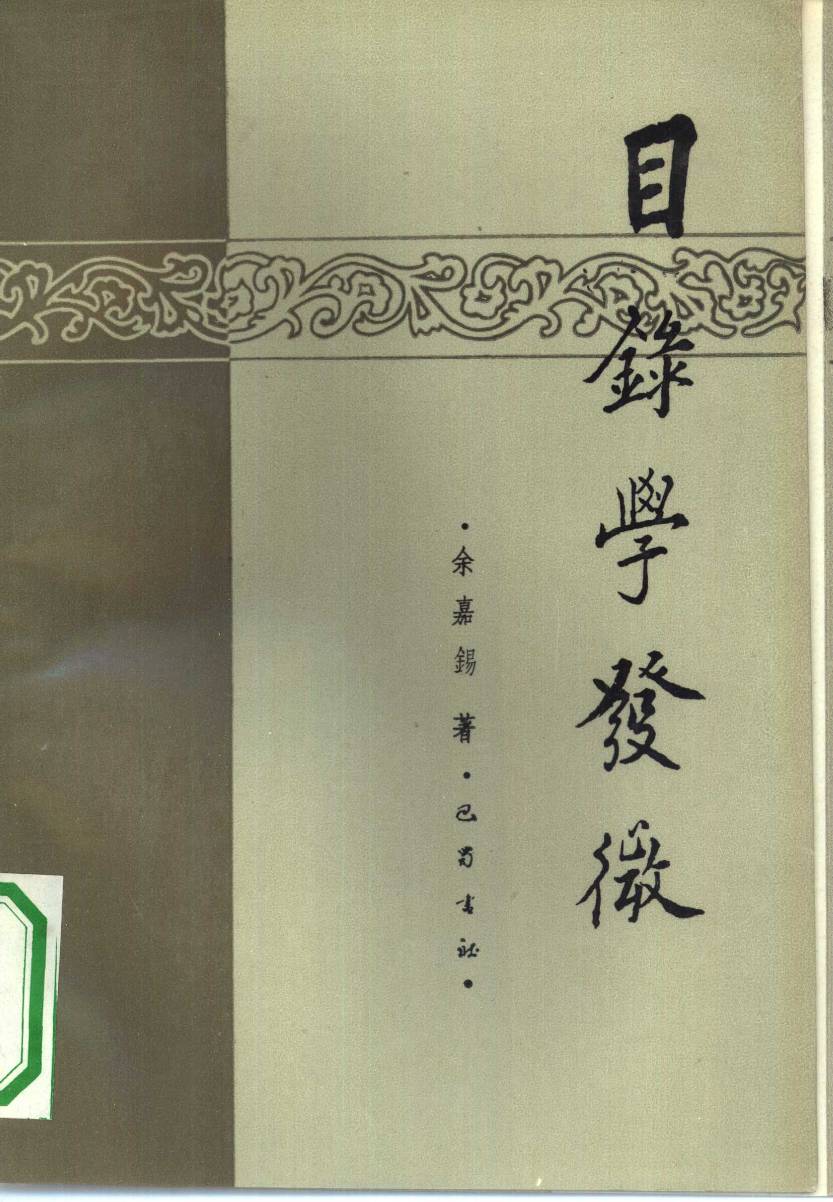 目錄學發微
·余嘉錫著·巴蜀书社·